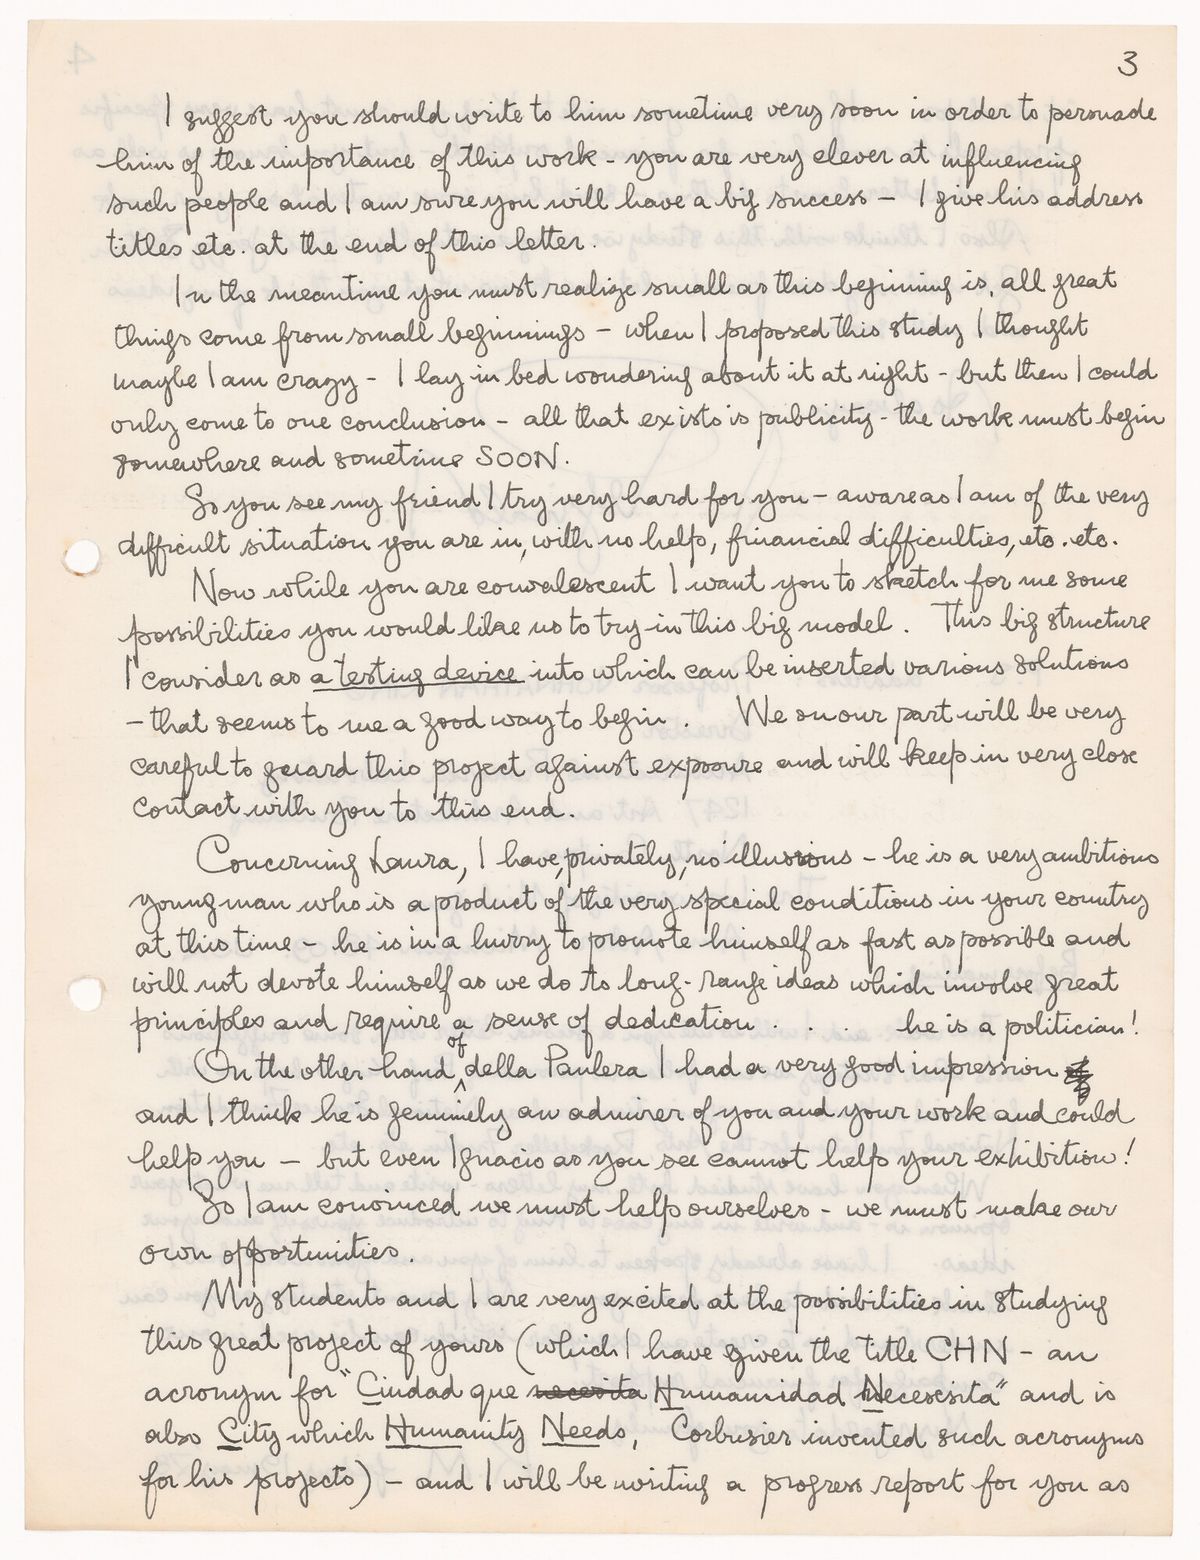 3
I suggest you should write to him sometime very soon in order to persuade
him of the importance of this work - you are very clever at influencing
such people and I am sure you will have a big success - I give his address
titles etc. at the end of this letter.
In the meantime you must realize small as this beginning is, all great
things come from small beginnings - when I proposed this study I thought
maybe I am crazy - I lay in bed wondering about it at night - but then I could
only come to one conclusion - all that exists is publicity - the work must begin
somewhere and sometime SOON.
So you see my friend I try very hard for you - aware as I am of the very
difficult situation you are in, with no help, financial difficulties, etc. etc.
Now while you are convalescent I want you to sketch for me some
possibilities you would like us to try in this big model. This big structure
I consider as a testing device into which can be inserted various solutions
- that seems to me a good way to begin. We on our part will be very
careful to guard this project against exposure and will keep in very close
contact with you to this end.
Concerning Laura, I have, privately, no illusions - he is a very ambitious
young man who is a product of the very special conditions in your country
at this time - he is in a hurry to promote himself as fast as possible and
will not devote himself as we do to long-range ideas which involve great
principles and require a sense of dedication . . . he is a politician!
On the other hand of della Paulera I had a very good impression
and I think he is genuinely an admirer of you and your work and could
help you - but even Ignacio as you see cannot help your exhibition!
So I am convinced we must help ourselves - we must make our
own opportunities.
My students and I are very excited at the possibilities in studying
this great project of yours (which I have given the title CHN - an
acronym for "Ciudad que necesita Humanidad Necescsita" and is
also City which Humanity Needs, Corbusier invented such acronyms
for his projects) - and I will be writing a progress report for you as